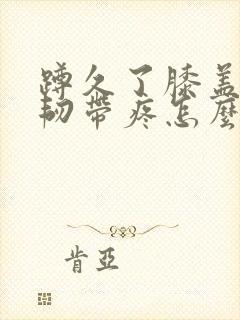 蹲久了膝蓋
韧帶疼怎麼
肯亞